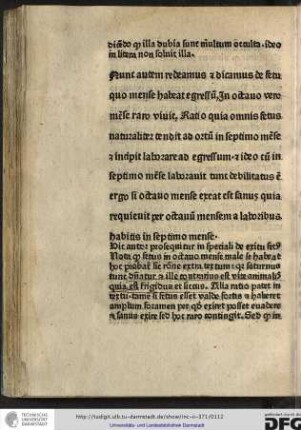 dicẽdo qꝫ illa dubia sunt multum occulta. ideo
in litera non soluit illa.
Nunc autem redeamus ⁊ dicamus de fetu
quo mense habeat egressũ. In octauo vero
mẽse raro viuit. Ratio quia omnis fetus
naturaliter tendit ad ortũ in septimo mẽse
⁊ incipit laborare ad egressum ⁊ ideo cũ in
septimo mẽse laborauit tunc debilitatus ẽ
ergo si octauo mense exeat est sanus quia
requieuit per octauũ mensem a laboribus
habitis in septimo mense.
Hic autor prosequitur in speciali de exitu
Nota qꝫ fetus in octauo mense male se habeat
hoc probat rõne quia saturnus
tunc dñatur ⁊ ille contrarius est vite
quia est frigidus et siccus. Alia ratio patet in
si fetus esset valde fortis ⁊ haberet
amplum foramen per qð exiret posset euadere
⁊ sanus exire sed hoc raro contingit. Sed qꝫ in
TECHNISCHE
UNIVERSITÄT
DARMSTADT
http://tudigit.ulb.tu-darmstadt.de/show/inc-iii-371/0112
Universitäts- und Landesbibliothek Darmstadt
gefördert durch die
DFG